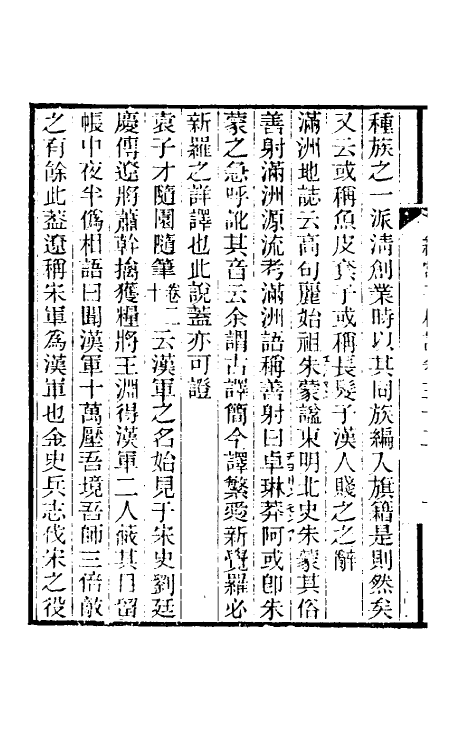 種族之一派淸創業時以其同族編入旗籍是則然矣
又云或稱魚皮套子或稱長髮子漢人賤之之辭
滿洲地誌云高句麗始祖朱蒙諡東明北史朱蒙其俗
善射滿洲源流考滿洲語稱善射曰卓琳莽阿或卽朱
蒙之急呼訛其音云余謂古譯簡今譯繁愛新覺羅必
新羅之詳譯也此說蓋亦可證
袁子才隨園隨筆卷十二云漢軍之名始見于宋史劉廷
慶傳遼將蕭幹擒獲糧將王淵得漢軍二人蔽其目留
帳中夜半僞相語曰聞漢軍十萬壓吾境吾師三倍敵
之有餘此葢遼稱宋軍為漢軍也金史兵志伐宋之役